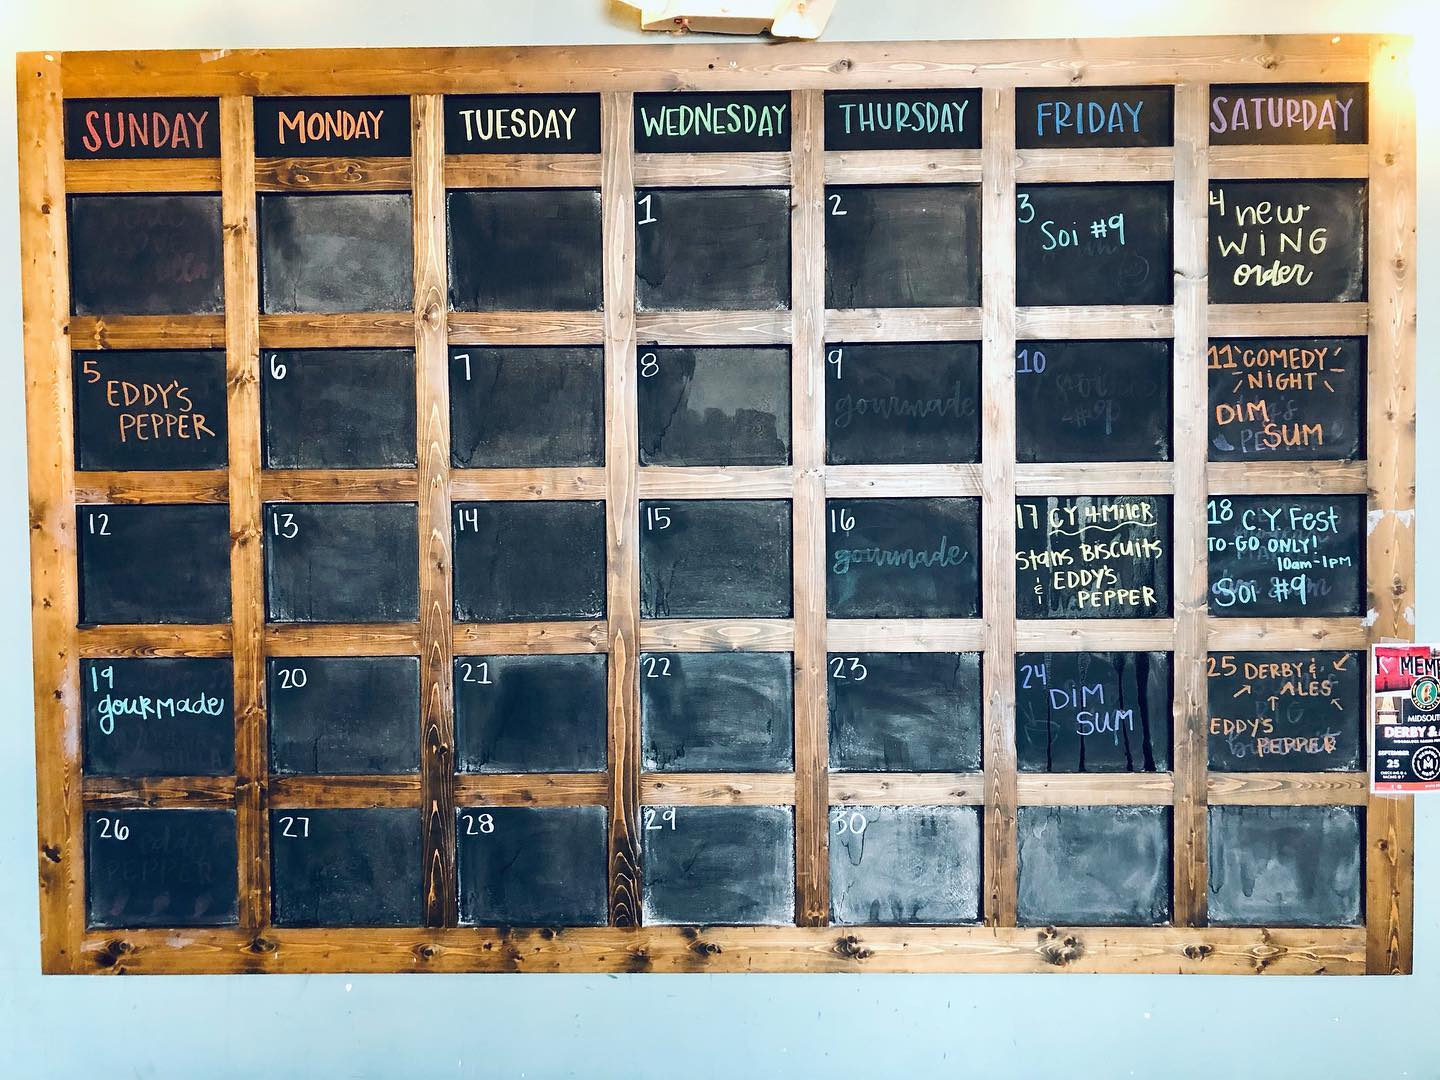 SUNDAY MONDAY TUESDAY WEDNESDAY THURSDAY FRIDAY SATURDAY
1
2
3
Soi #9
4
new
WING
order
5
EDDY'S
PEPPER
6
7
8
9
gourmade
10
soi
#9
11 COMEDY
NIGHT
DIM
SUM
12
13
14
15
16
gourmade
17 CY 4-MILER
Stans BISCUITS
& EDDY'S
PEPPER
18 C.Y. Fest
TO-GO ONLY!
10am-1pm
Soi #9
19
gourmade
20
21
22
23
24
DIM
SUM
25 DERBY &
ALES
EDDYS
PEPPER
26
PEPPER
27
28
29
30
MEMP
MIDSOUT
DERBY &
SEPTEMBER
25